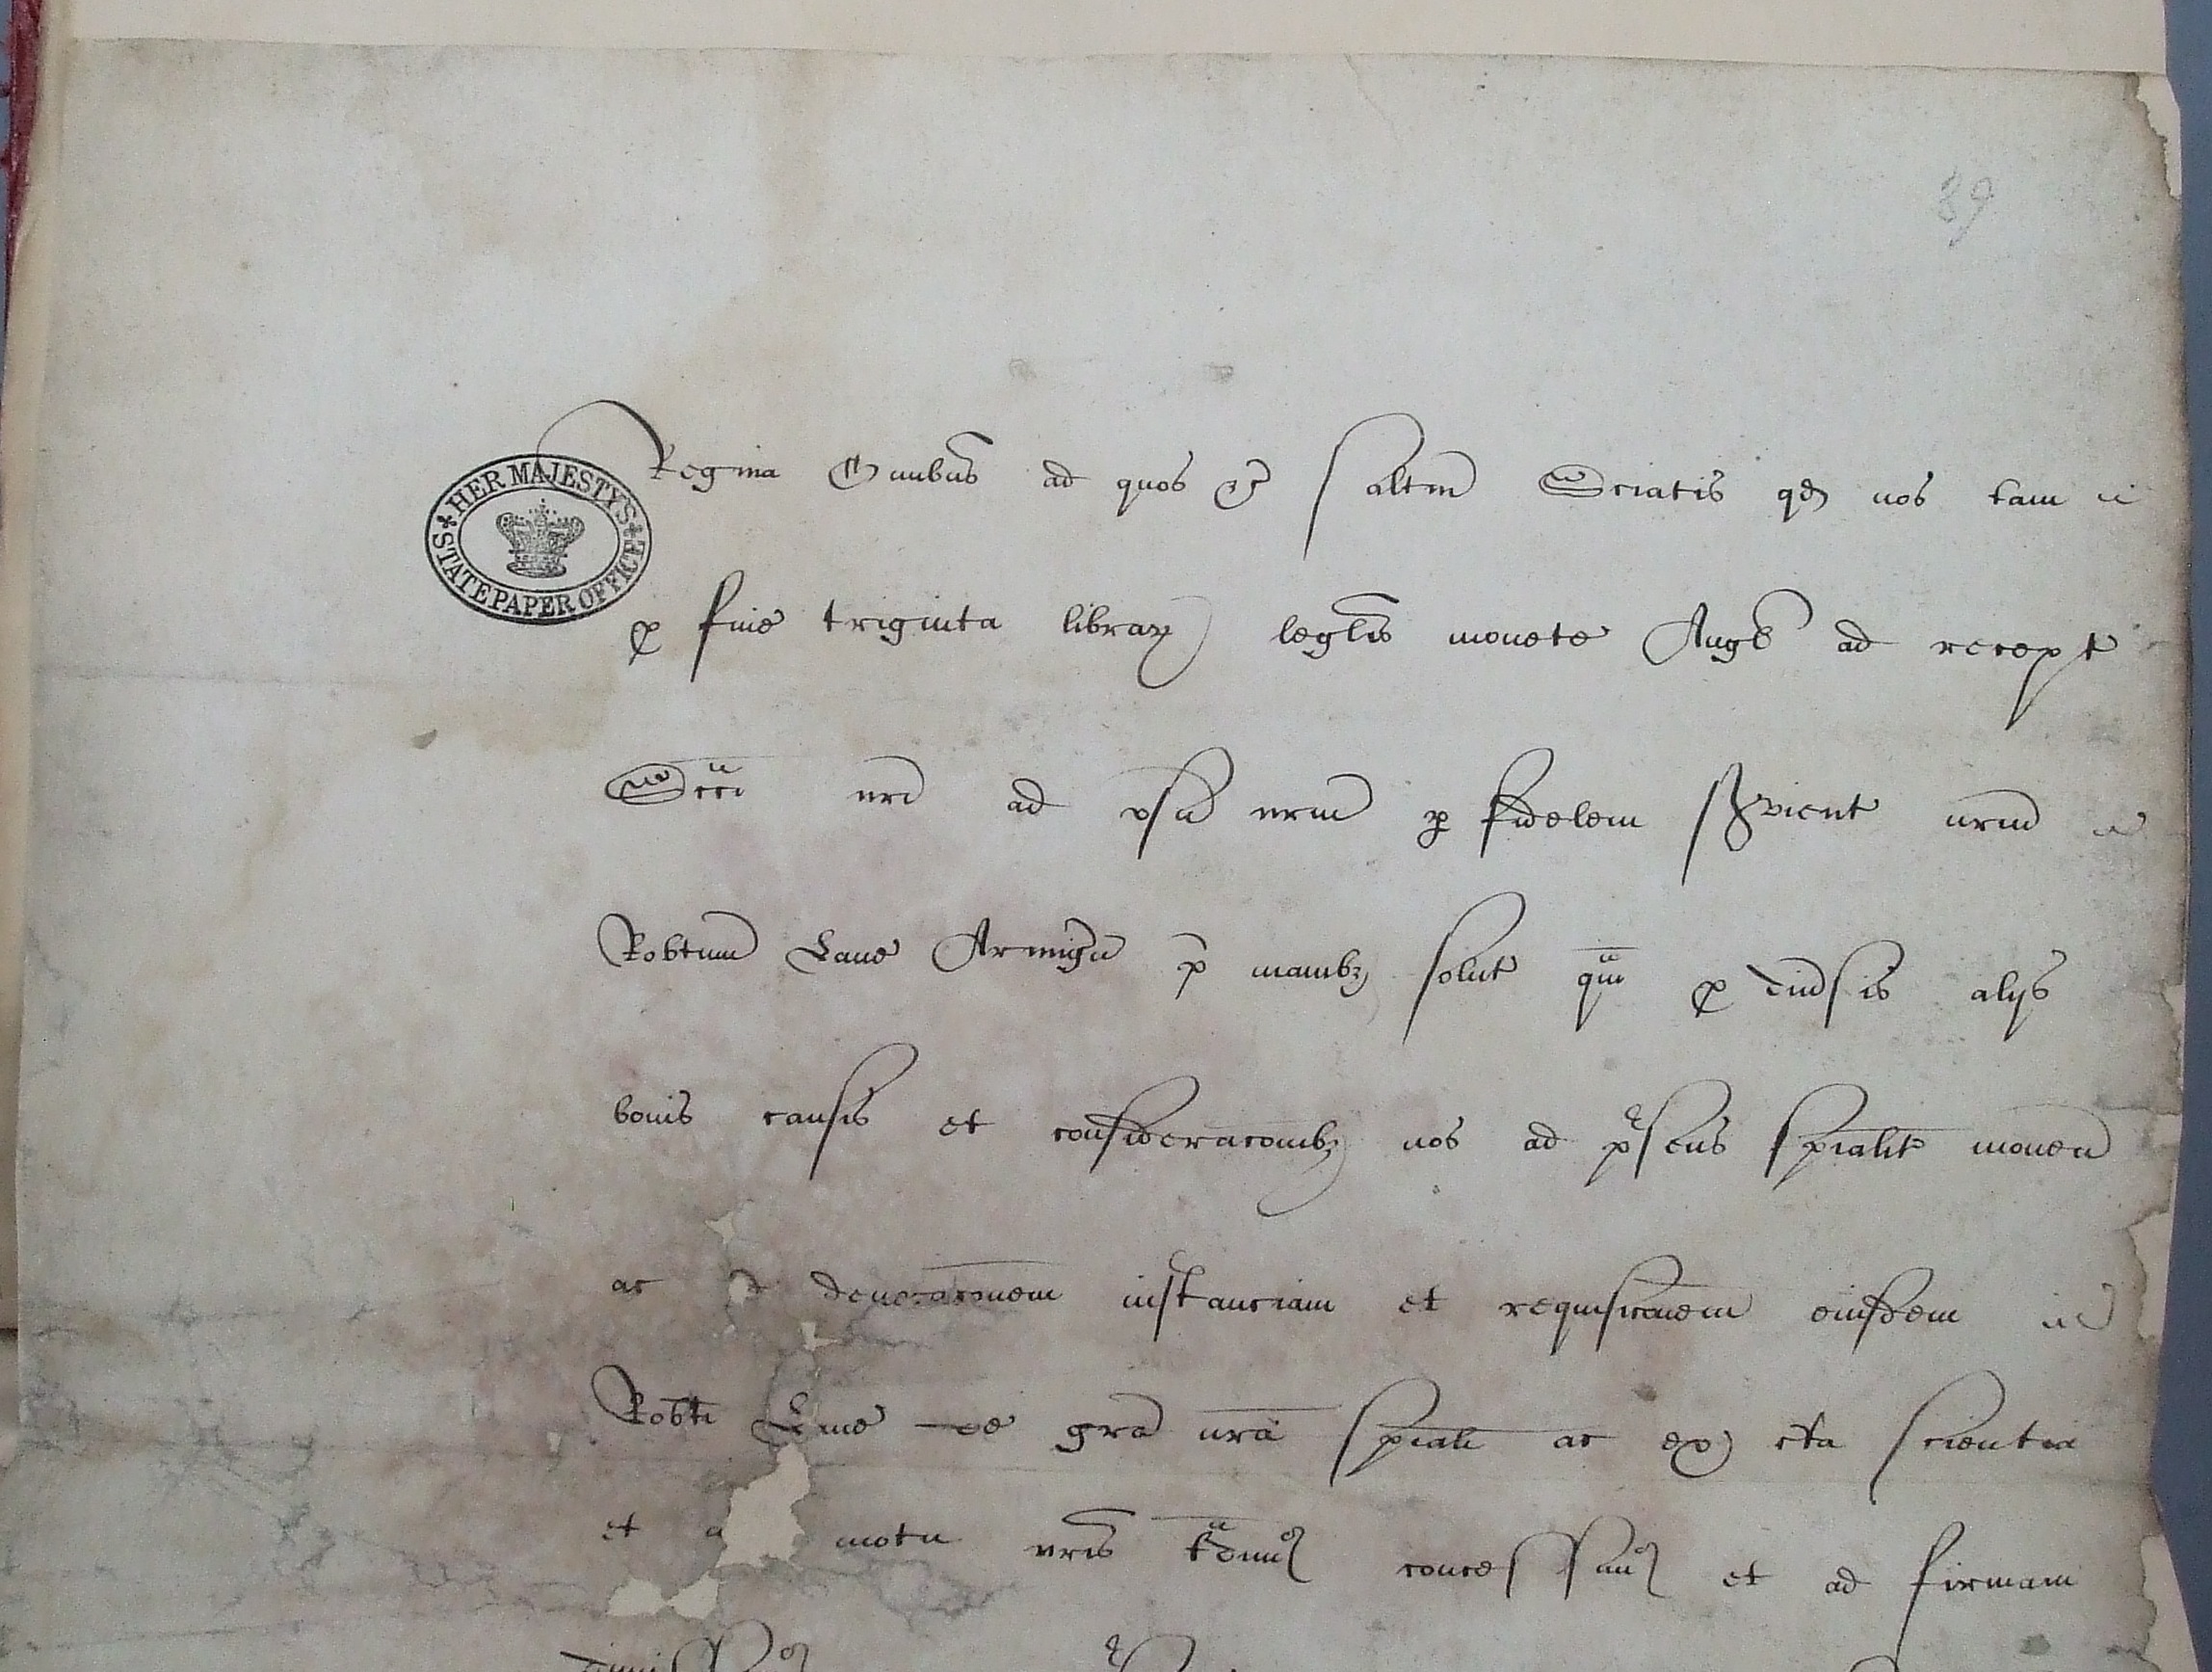 89
HER MAJESTY'S
STATE PAPER OFFICE
Regina Omnibus ad quos &c saltm Sciatis qd nos tam
p fine triginta librar leglis monete Angl ad recept
Sccii nri ad usu nrm p fidelem servient nrm
Robtum Lane Armigu p manibz solut qm p diusis alijs
bonis causis et consideraconibz nos ad psens spialit moven
ac instanciam et requisiconem eiusdem
Robti Lane de gra nra spiali ac ex cta scientia
et motu nris tradimus concessimus et ad firmam